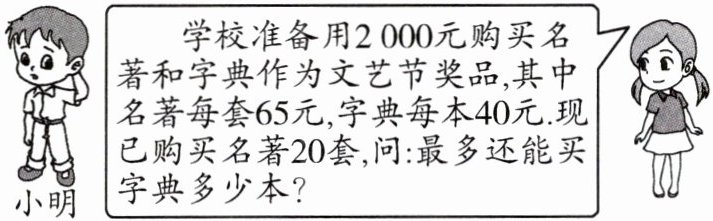 学校准备用2 000元购买名
著和字典作为文艺节奖品,其中
名著每套65元,字典每本40元.现
已购买名著20套,问:最多还能买
字典多少本?
小明